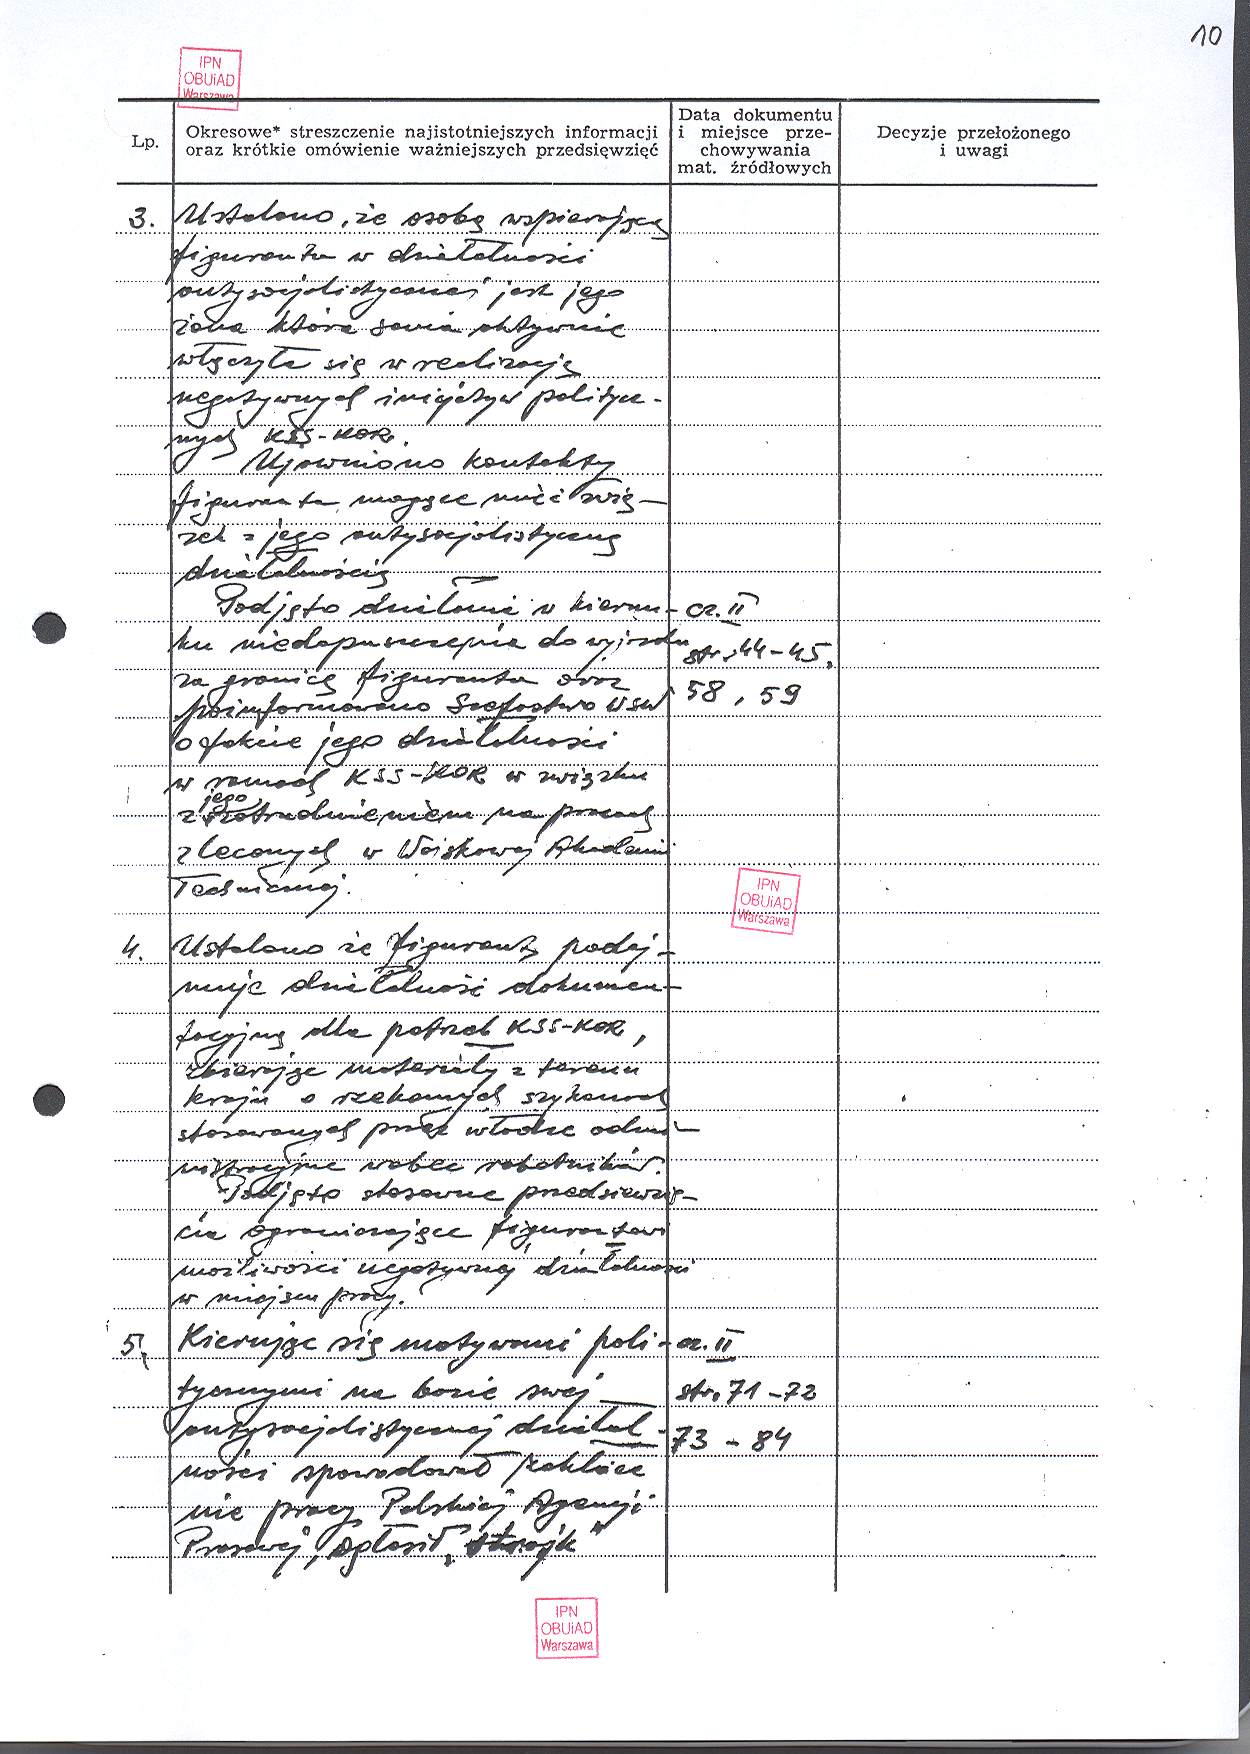 10
IPN
OBUiAD
Warszawa
Lp.
Okresowe* streszczenie najistotniejszych informacji
oraz krótkie omówienie ważniejszych przedsięwzięć
Data dokumentu
i miejsce prze-
chowywania
mat. źródłowych
Decyzje przełożonego
i uwagi
3. Ustalono, że osobą wspierającą
figuranta w działalności
antysocjalistycznej jest jego
żona która sama aktywnie
włączyła się w realizację
negatywnych inicjatyw politycz-
nych KSS-KOR.
Ujawniono kontakty
figuranta mogące mieć zwią-
zek z jego antysocjalistyczną
działalnością
Podjęto działania w kierun-
cz. II
ku niedopuszczenia do wyjazdu
str. 44-45,
za granicę figuranta oraz
58, 59
poinformowano Szefostwo WSW
o fakcie jego działalności
w ramach KSS-KOR w związku
jego
z zatrudnieniem na pracach
zleconych w Wojskowej Akademii
Technicznej.
IPN
OBUiAD
Warszawa
4. Ustalono że figurant podej-
muje działalność dokumen-
tacyjną dla potrzeb KSS-KOR,
zbierając materiały z terenu
kraju o rzekomych szykanach
stosowanych przez władze admi-
nistracyjne wobec robotników.
Podjęto stosowne przedsięwzię-
cia ograniczające figurantowi
możliwości negatywnej działalności
w miejscu pracy.
5. Kierując się motywami poli-
cz. II
tycznymi na bazie swej
str. 71-72
antysocjalistycznej działal-
73-84
ności spowodował zakłóce
nie pracy Polskiej Agencji
Prasowej, ogłosił "strajk"
IPN
OBUiAD
Warszawa